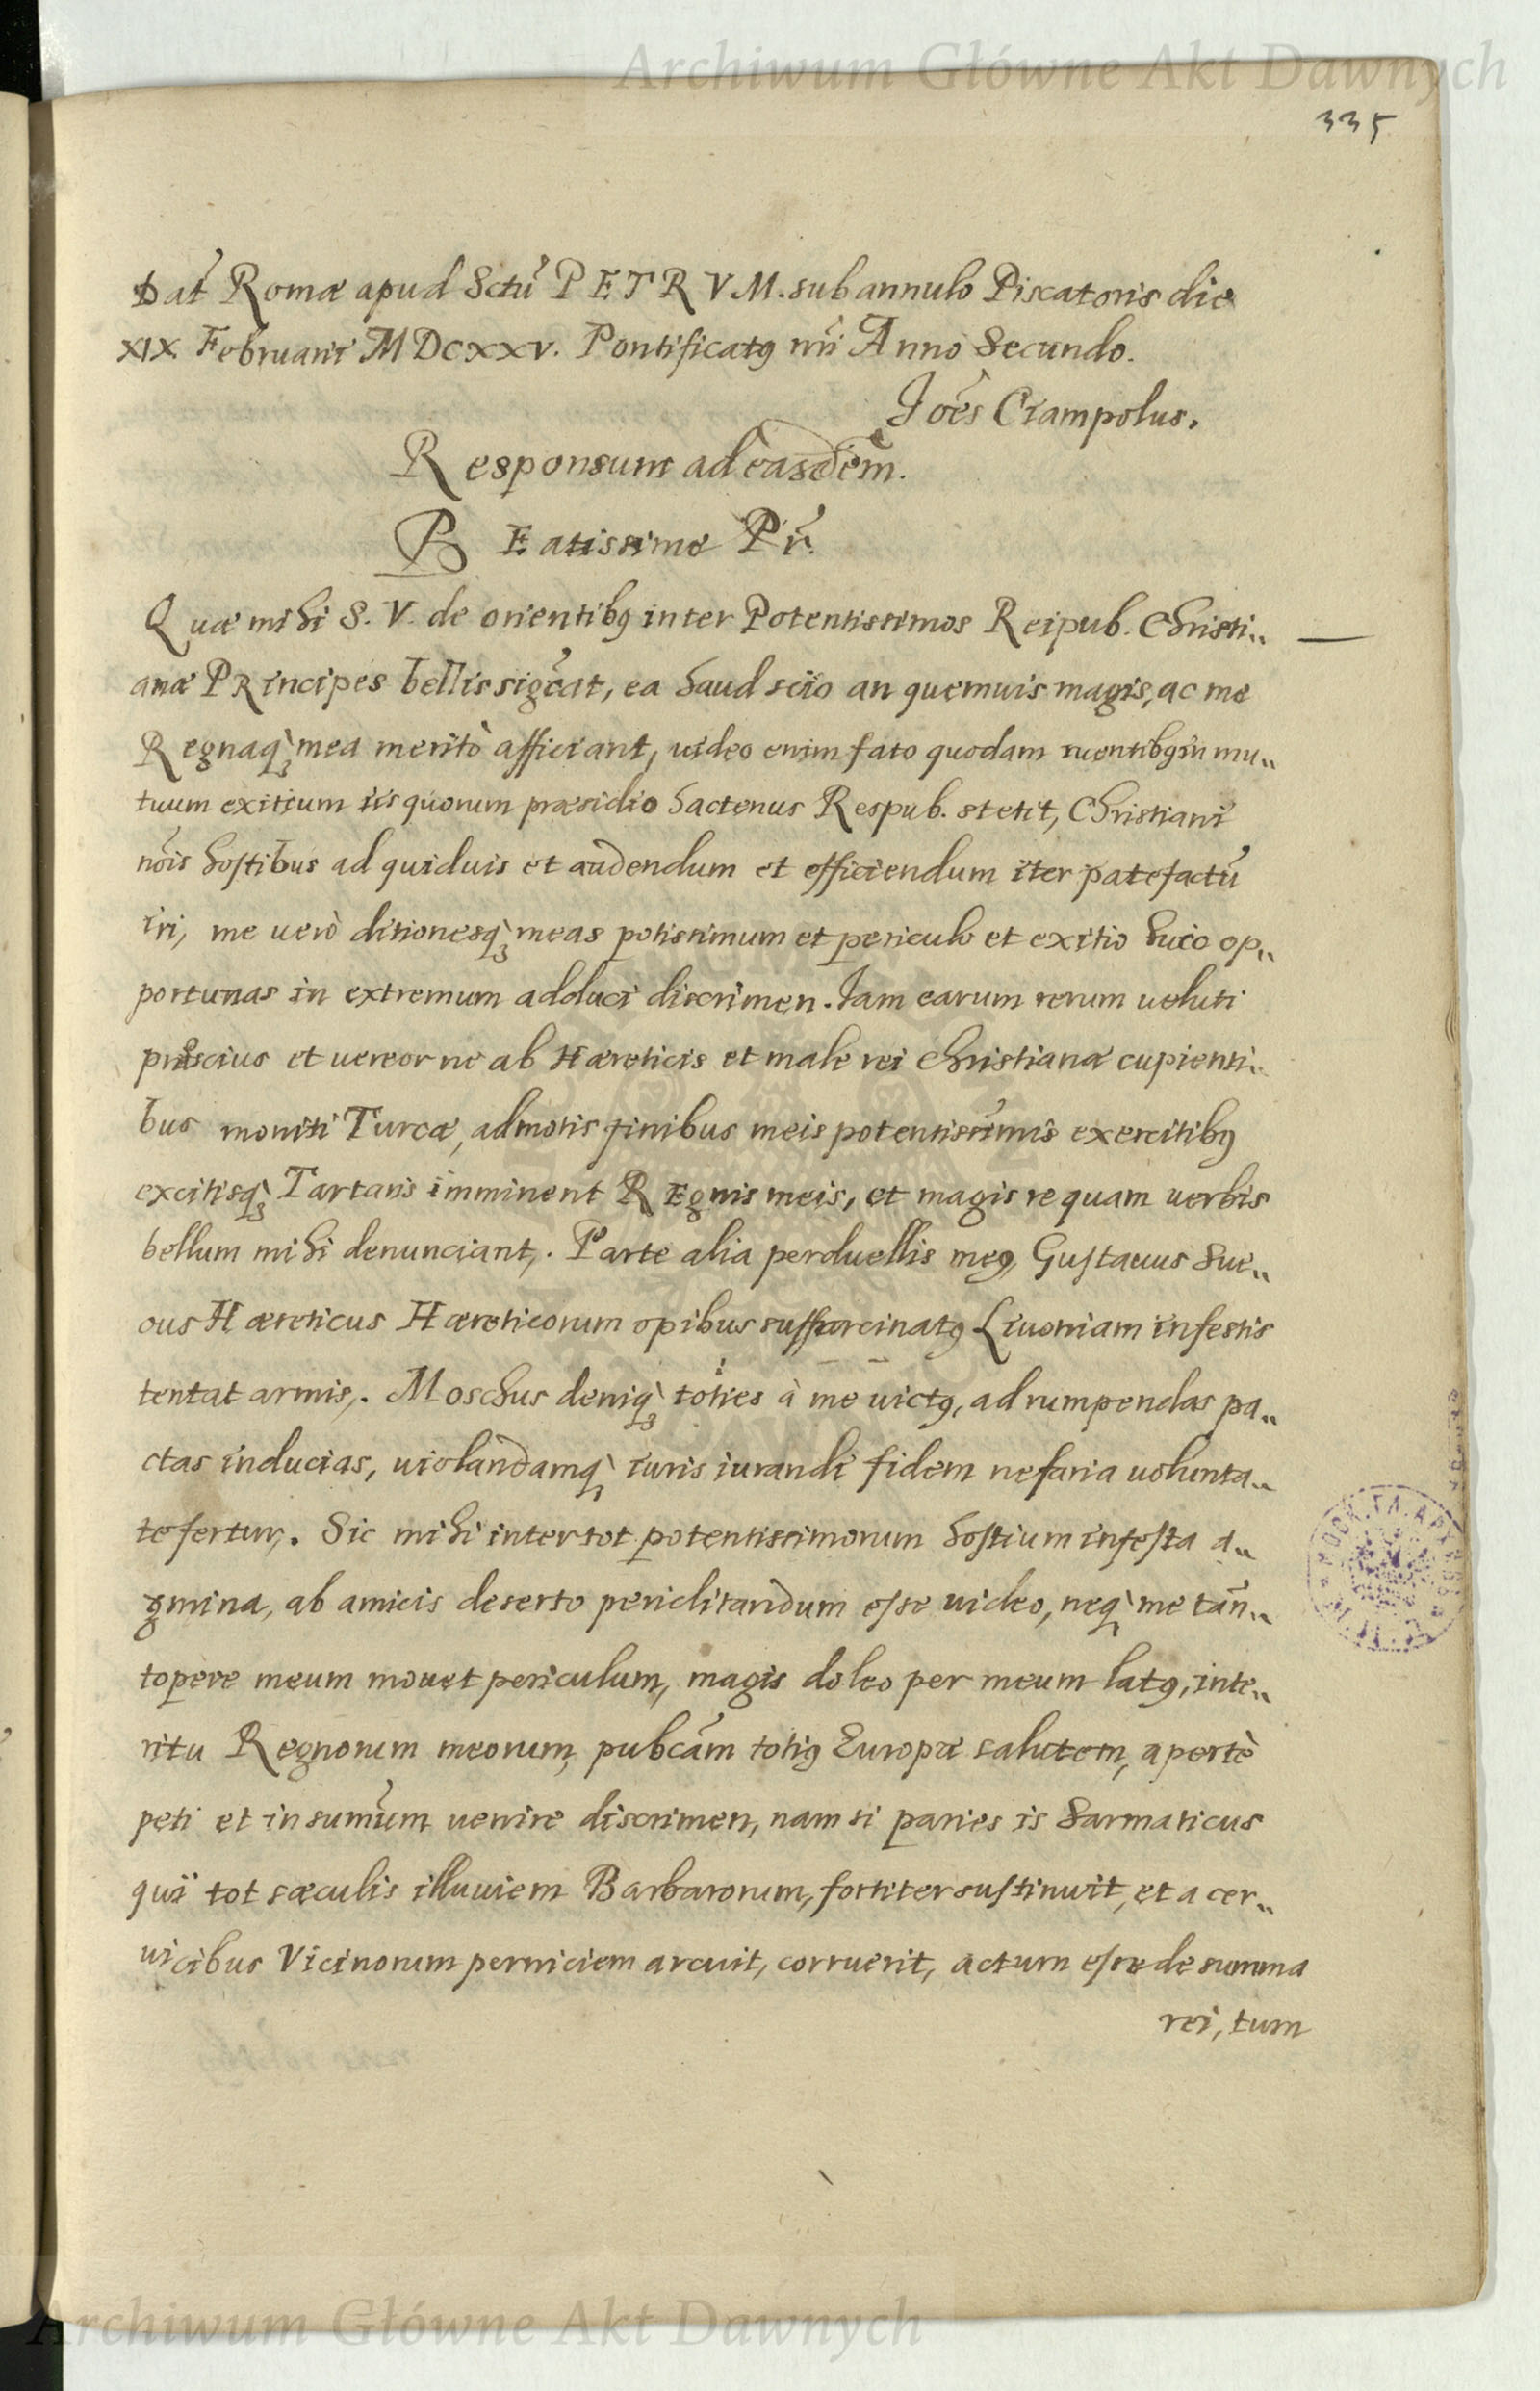 Archiwum Główne Akt Dawnych
335
Dat̃ Romæ apud Sctũ PETRVM. sub annulo Piscatoris die
XIX Februarii MDCXXV. Pontificatꝯ nr̃i Anno Secundo.
Joẽs Ciampolus.
Responsum ad easdem.
BEatissime Pr̃.
Quæ mihi S. V. de orientibꝯ inter Potentissimos Reipub. Christi„
anæ PRincipes bellis sigc̃at, ea haud scio an quemuis magis, ac me
Regnaqꝫ mea meritò afficiant, uideo enim fato quodam ruentibꝯ in mu„
tuum exitium iis quorum præsidio hactenus Respub. stetit, Christiani
nõis hostibus ad quiduis et audendum et efficiendum iter patefactũ
iri, me uerò ditionesqꝫ meas potissimum et periculo et exitio huic op„
portunas in extremum adduci discrimen. Jam earum rerum ueluti
præscius et uereor ne ab Hæreticis et male rei Christianæ cupienti„
bus moniti Turcæ, admotis finibus meis potentissimis exercitibꝯ
excitisqꝫ Tartaris imminent REgnis meis, et magis re quam uerbis
bellum mihi denunciant,. Parte alia perduellis meꝯ, Gustauus Sue„
cus Hæreticus Hæreticorum opibus suffarcinatꝯ Liuoniam infestis
tentat armis,. Moschus deniqꝫ toties à me uictꝯ, ad rumpendas pa„
ctas inducias, uiolandamqꝫ iuris iurandi fidem nefaria uolunta„
te fertur,. Sic mihi inter tot potentissimorum hostium infesta a„
gmina, ab amicis deserto periclitandum esse uideo, neqꝫ me tañ„
topere meum mouet periculum, magis doleo per meum latꝯ, inte„
ritu Regnorum meorum, pubcãm totiꝯ Europæ salutem, apertè
peti et in sum̃um uenire discrimen, nam si paries is Sarmaticus
qui tot sæculis illuuiem Barbarorum, fortiter sustinuit, et a cer„
uicibus Vicinorum perniciem arcuit, corruerit, actum esse de summa
rei, tum
Archiwum Główne Akt Dawnych